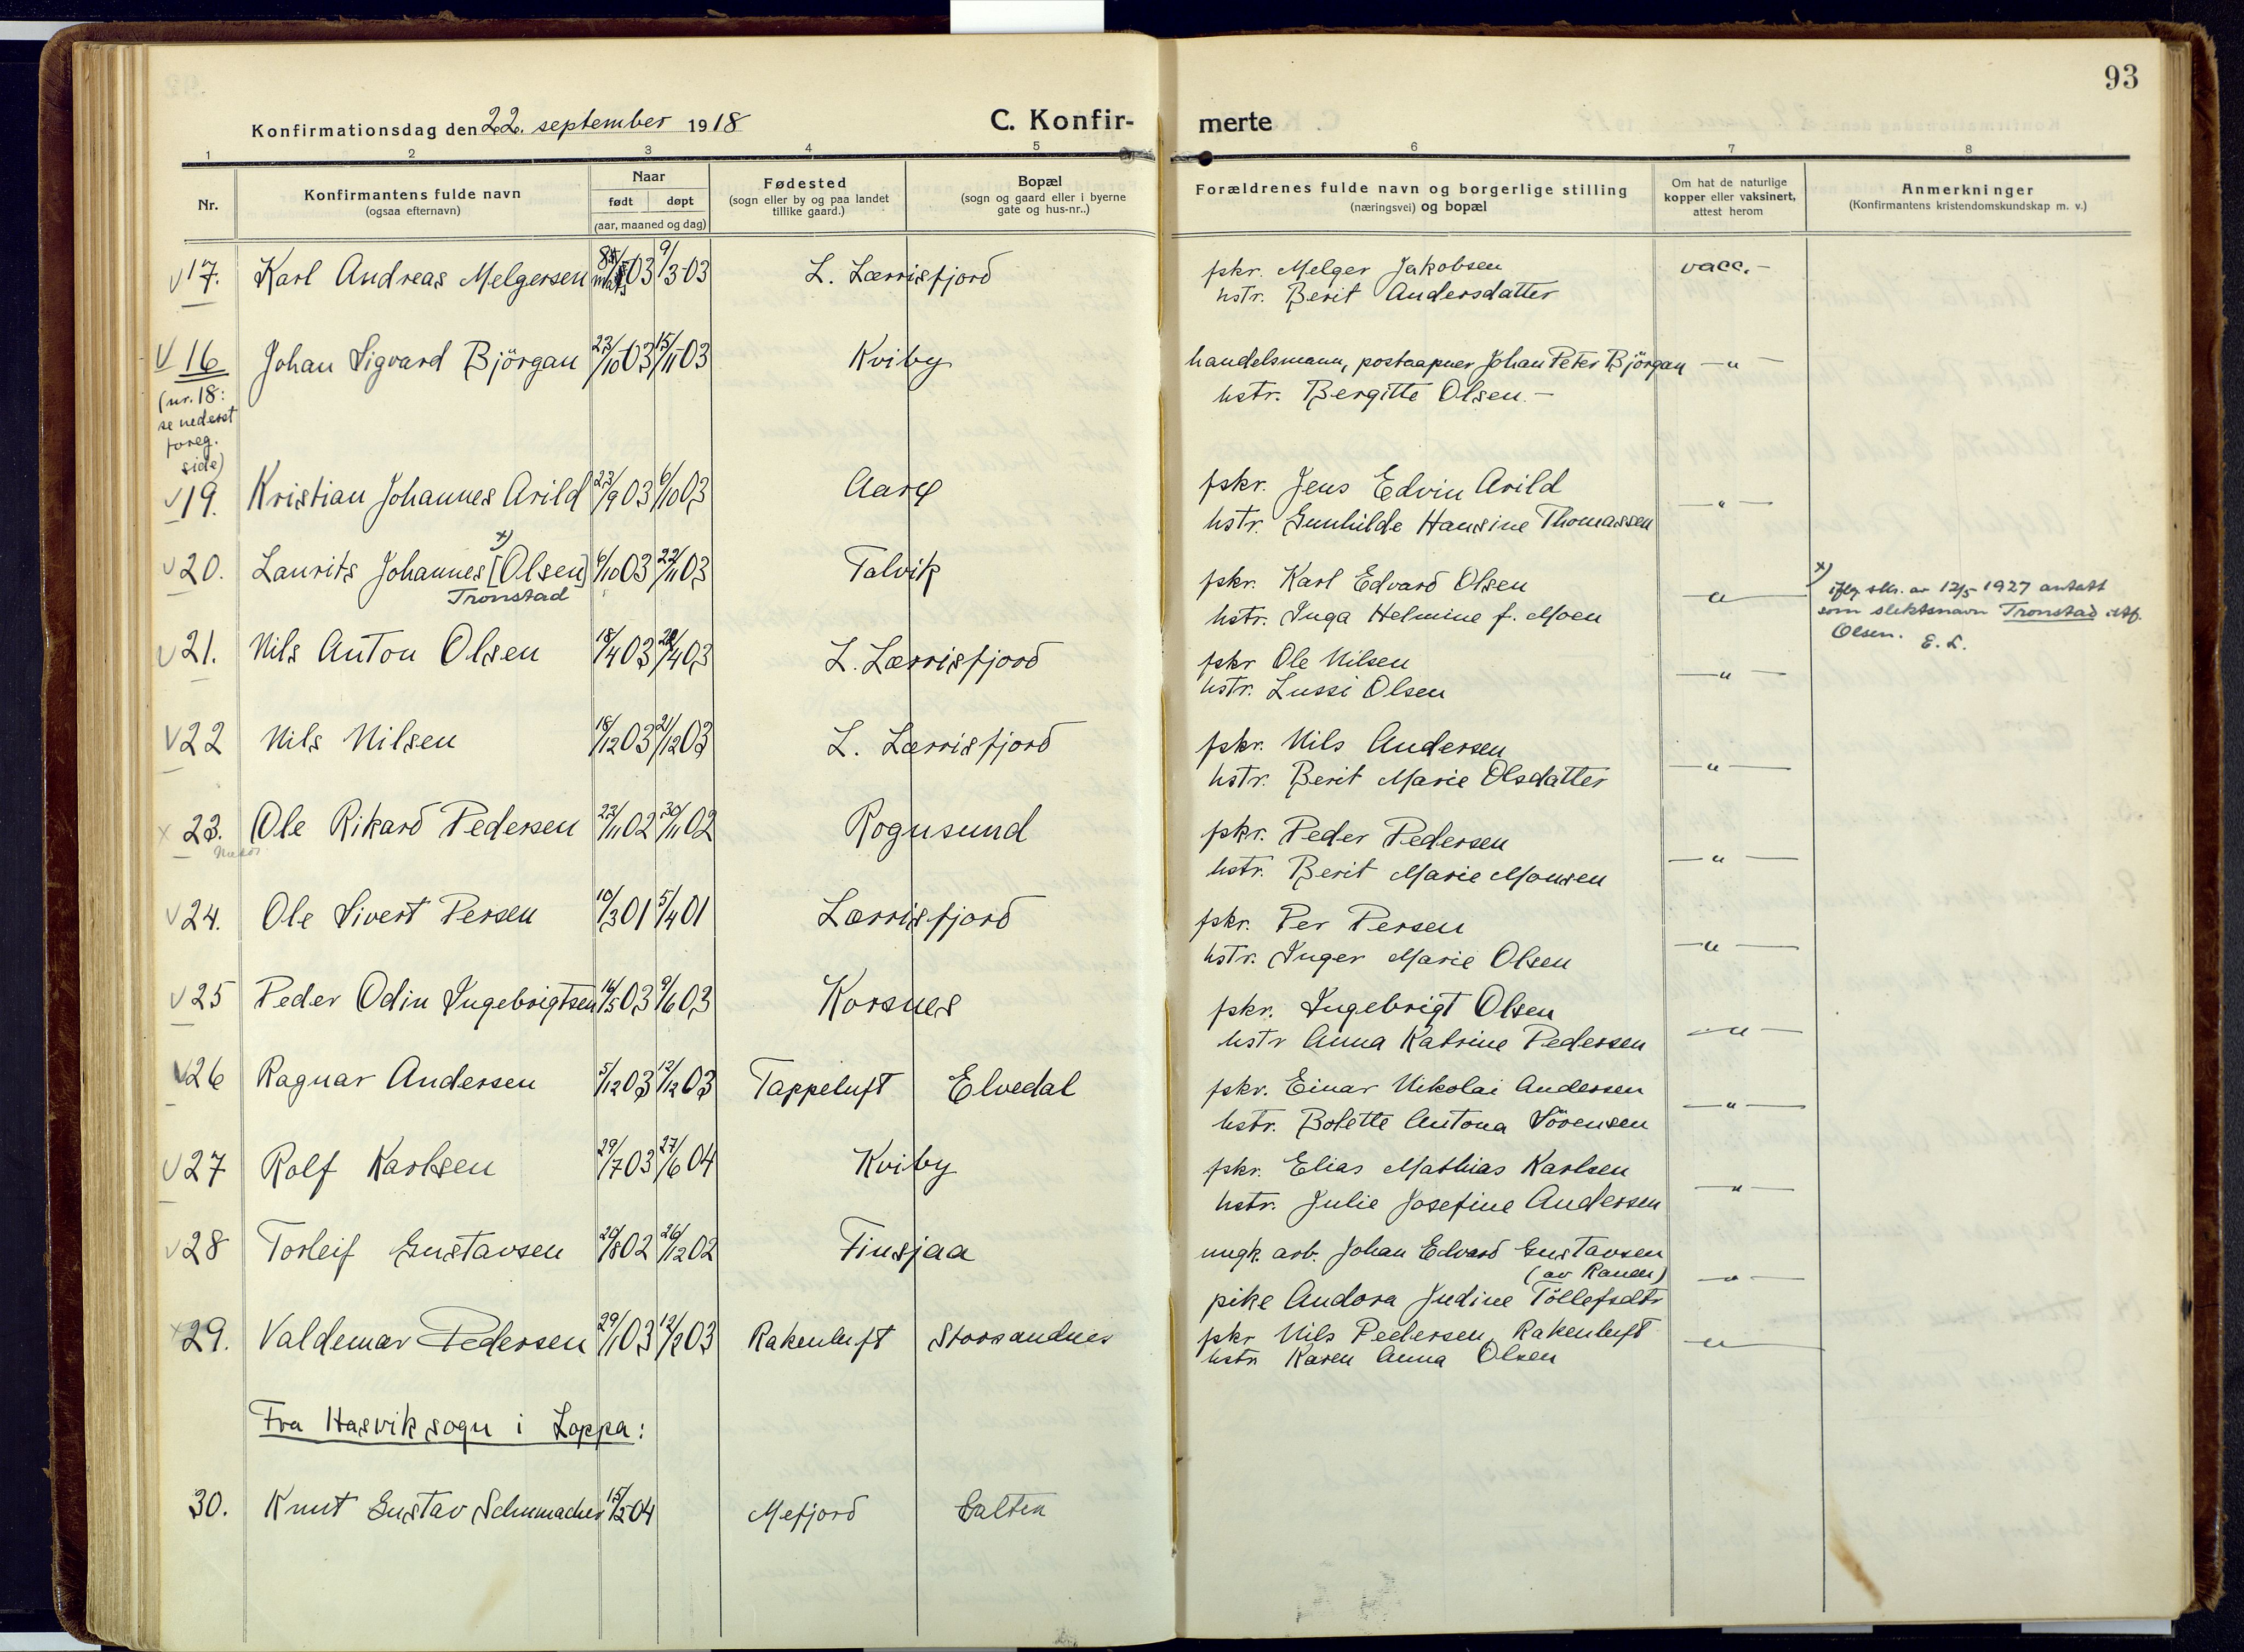 93
Konfirmationsdag den 22. september 1918
C. Konfir-
merte
1 2 3 4 5 6 7 8
Nr.
Konfirmantens fulde navn
(ogsaa efternavn)
Naar
født døpt
(aar, maaned og dag)
Fødested
(sogn eller by og paa landet
tillike gaard.)
Bopæl
(sogn og gaard eller i byerne
gate og hus-nr..)
Forældrenes fulde navn og borgerlige stilling
(næringsvei) og bopæl
Om hat de naturlige
kopper eller vaksinert,
attest herom
Anmerkninger
(Konfirmantens kristendomskundskap m. v.)
V 17. Karl Andreas Melgersen 03 9/3-03 L. Lærrisfjord fskr. Melger Jakobsen vacc. –
hstr. Berit Andersdatter
V 16 Johan Sigvard Björgan 23/10-03 15/11-03 Kviby handelsmann, postaapner Johan Peter Björgan – " –
hstr. Bergitte Olsen. –
(nr. 18:
se nederst
foreg.
side)
V 19. Kristian Johannes Arild 23/9 03 6/10 03 Aarø fskr. Jens Edvin Arild – " –
hstr. Gunhilde Hansine Thomassen
V 20. Laurits Johannes [Olsen] x) 6/10 03 22/11 03 Talvik fskr. Karl Edvard Olsen – " –
Tronstad
hstr. Inga Helmine f. Moen
x) iflg. skr. av 12/5 1927 antatt
som slektsnavn Tronstad istf.
Olsen. E. L.
V 21. Nils Anton Olsen 18/4 03 /4 03 L. Lærrisfjord fskr Ole Nilsen – " –
hstr. Lussi Olsen
V 22 Nils Nilsen 18/12 03 21/12 03 L. Lærrisfjord fskr. Nils Andersen – " –
hstr. Berit Marie Olsdatter
x 23. Ole Rikard Pedersen 23/11 02 30/11 02 Rognsund fskr. Peder Pedersen – " –
hstr. Berit Marie Monsen
V 24. Ole Sivert Persen 10/3 01 5/4 01 Lærrisfjord fskr. Per Persen – " –
hstr. Inger Marie Olsen
V 25 Peder Odin Ingebrigtsen /5 03 9/6 03 Korsnes fskr. Ingebrigt Olsen – " –
hstr Anna Katrine Pedersen
V 26 Ragnar Andersen 5/12 03 12/12 03 Tappeluft Elvedal fskr. Einar Nikolai Andersen – " –
hstr. Bolette Antona Sörensen
V 27 Rolf Karlsen 29/7 03 27/6 04 Kviby fskr. Elias Mathias Karlsen – " –
hstr. Julie Josefine Andersen
V 28 Torleif Gustavsen /8 02 26/12 02 Finsjaa ungk. arb. Johan Edvard Gustavsen – " –
(av Ranen)
pike Andora Judine Töllefsdtr
x 29. Valdemar Pedersen 29/1 03 12/2 03 Rakenluft Storsandnes fskr Nils Pedersen, Rakenluft – " –
hstr Karen Anna Olsen
Fra Hasvik sogn i Loppa:
30. Knut Gustav Schumacher 15/2 04 Mefjord Galten